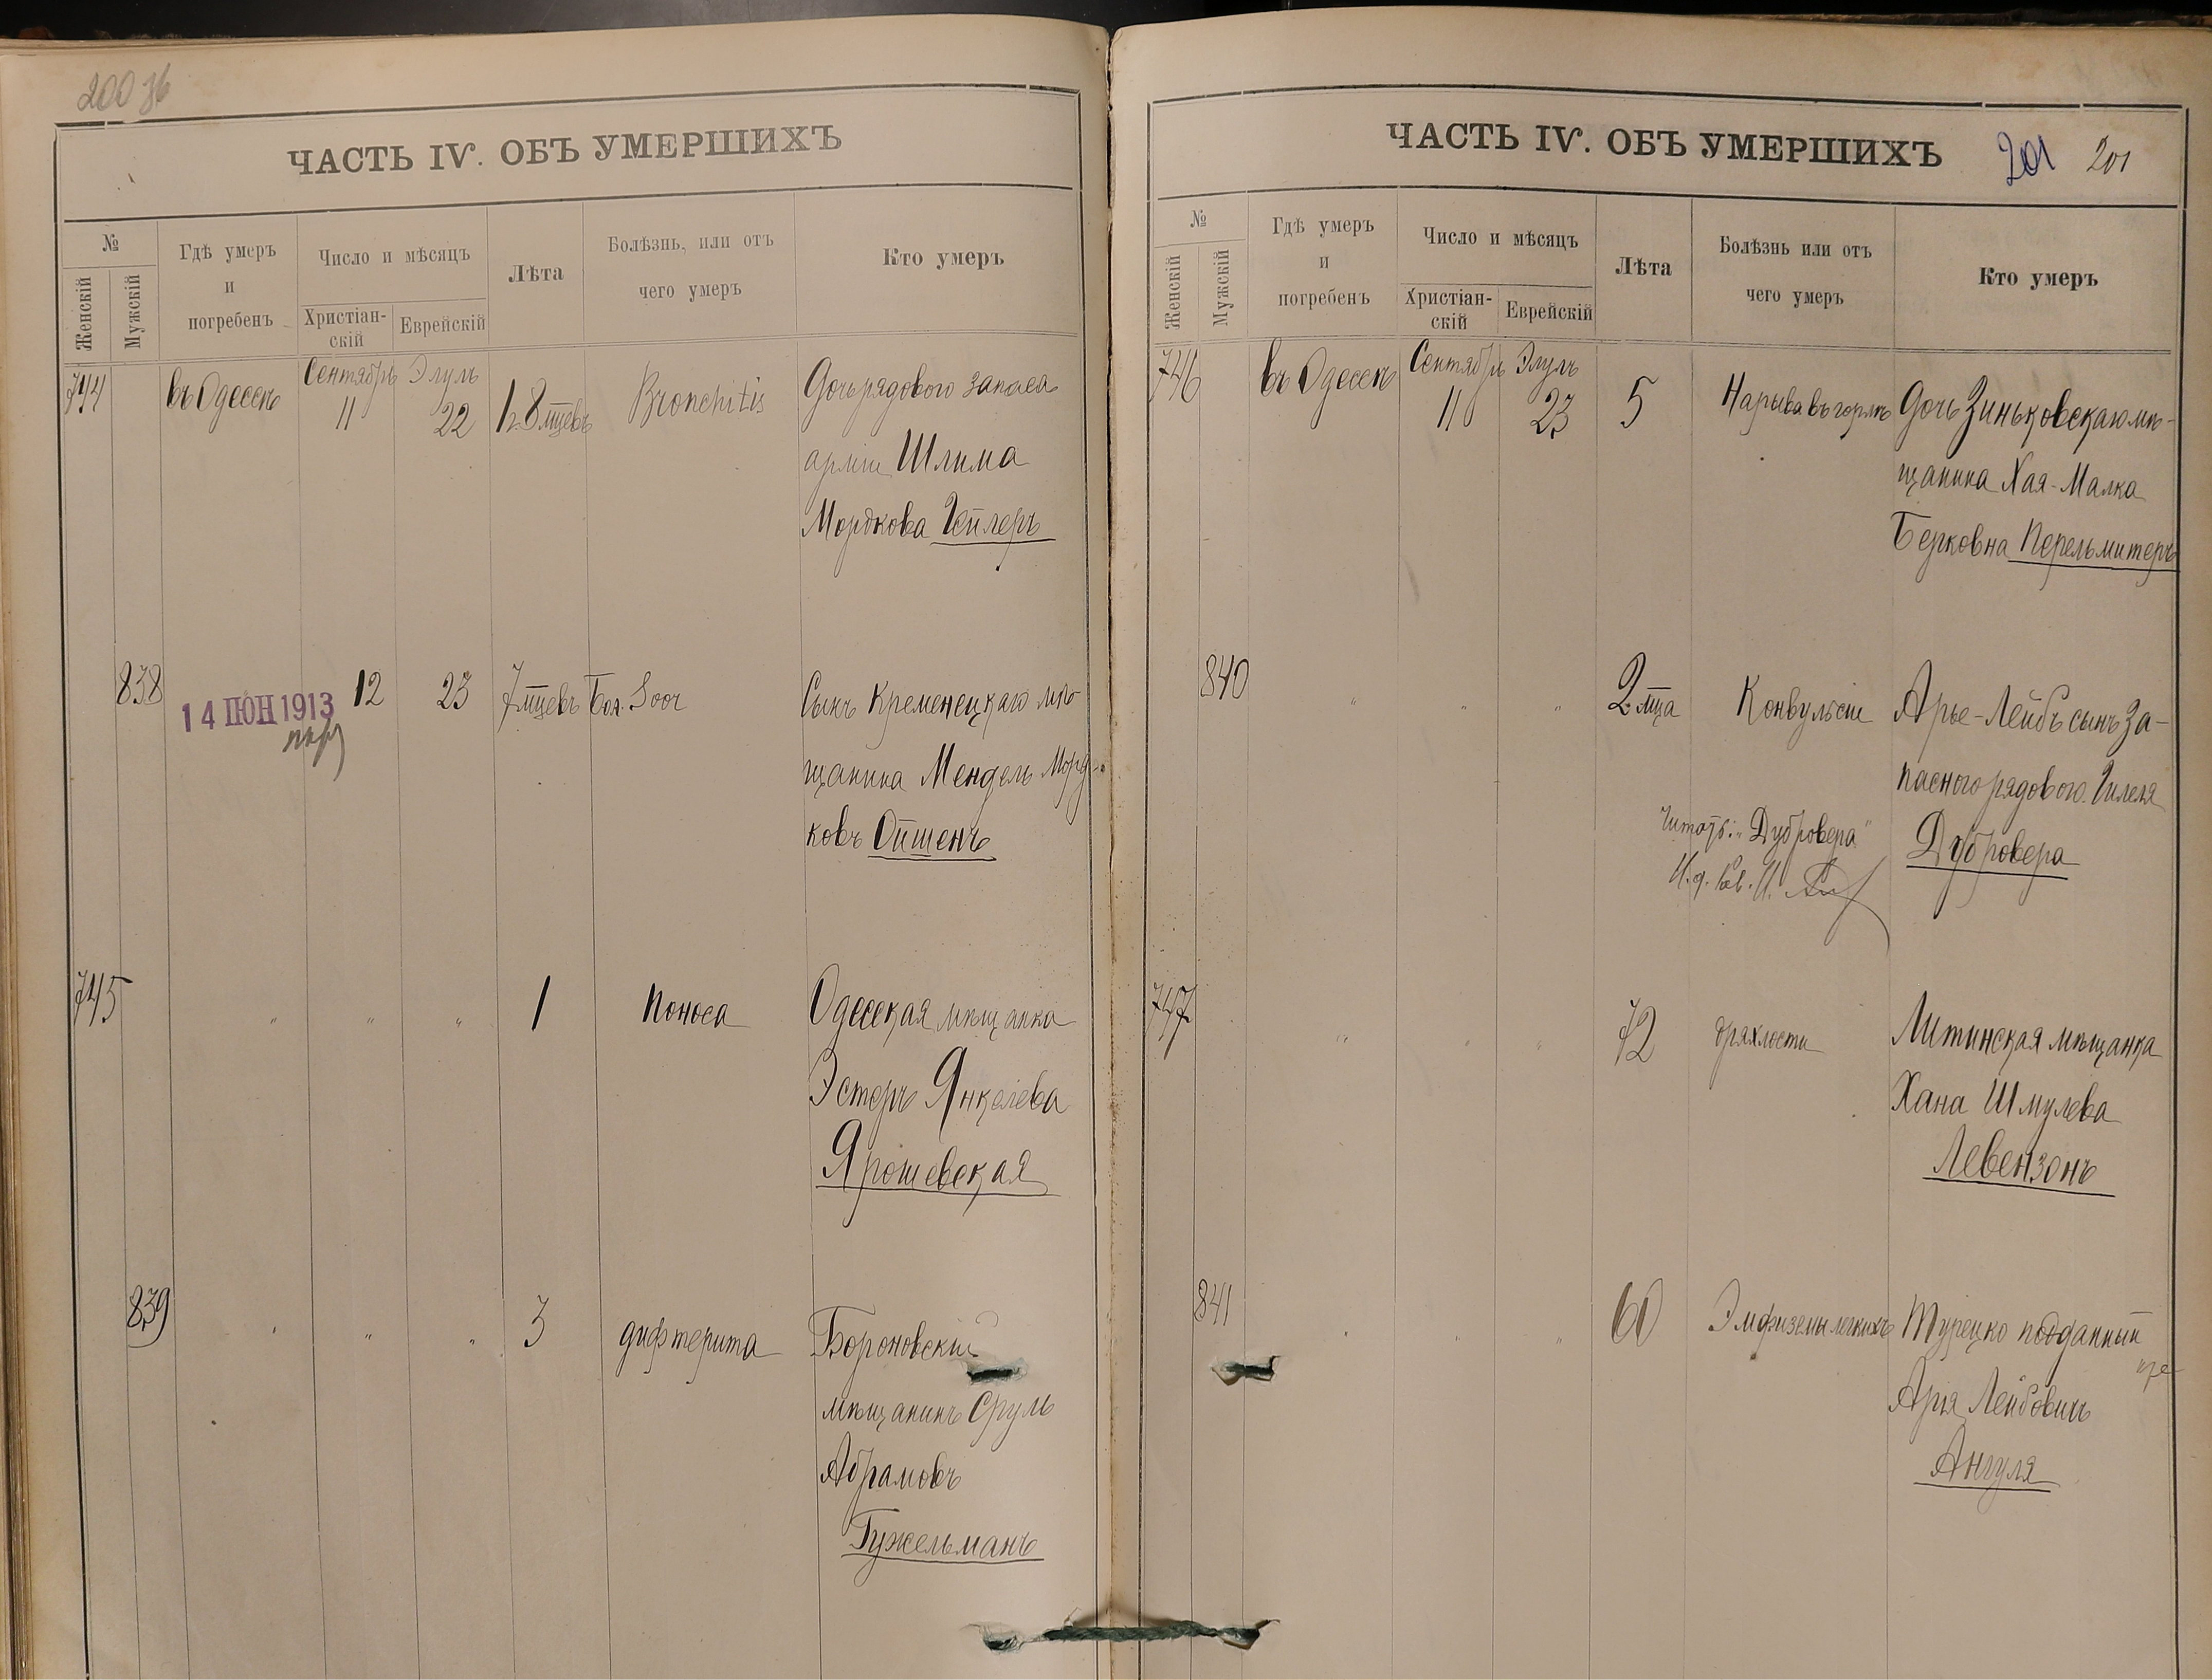 200 об
ЧАСТЬ IV. ОБЪ УМЕРШИХЪ
№
Женскій
Мужскій
Гдѣ умеръ
и
погребенъ
Число и мѣсяцъ
Христіан-
скій
Еврейскій
Лѣта
Болѣзнь, или отъ
чего умеръ
Кто умеръ
744 въ Одессѣ Сентябрь 11 Элулъ 22 1. 8 мцевъ Bronchitis Дочь рядового запаса
арміи Шлима
Мордкова Гейлеръ
838 14 ІЮН 1913 12 23 7 мцевъ Бол. Soor Сынъ Кременецкаго мѣ
щанина Мендель Морд-
ковъ Ойшенъ
745 " " " 1 Поноса Одесская мѣщанка
Эстеръ Янкелева
Ярошевская
839 " " " 3 дифтерита Бороновскій
мѣщанинъ Сруль
Абрамовъ
Гужельманъ
ЧАСТЬ IV. ОБЪ УМЕРШИХЪ
201 201
№
Женскій
Мужскій
Гдѣ умеръ
и
погребенъ
Число и мѣсяцъ
Христіан-
скій
Еврейскій
Лѣта
Болѣзнь или отъ
чего умеръ
Кто умеръ
746 въ Одессѣ Сентябрь 11 Элулъ 23 5 Нарыва въ горлѣ Дочь Зиньковскаго мѣ-
щанина Хая-Малка
Берковна Перельмитеръ
840 " " " 2 мца Конвульсіи Арье-Лейбъ сынъ за-
пасного рядового Гилеля
Дубровера
Читать: "Дубровера"
И. д. Рав. И.
747 " " " 72 дряхлости Литинская мѣщанка
Хана Шмулева
Левензонъ
841 " " " 60 Эмфиземы легкихъ Турецко подданный
Арія Лейбовичъ
Ангуля